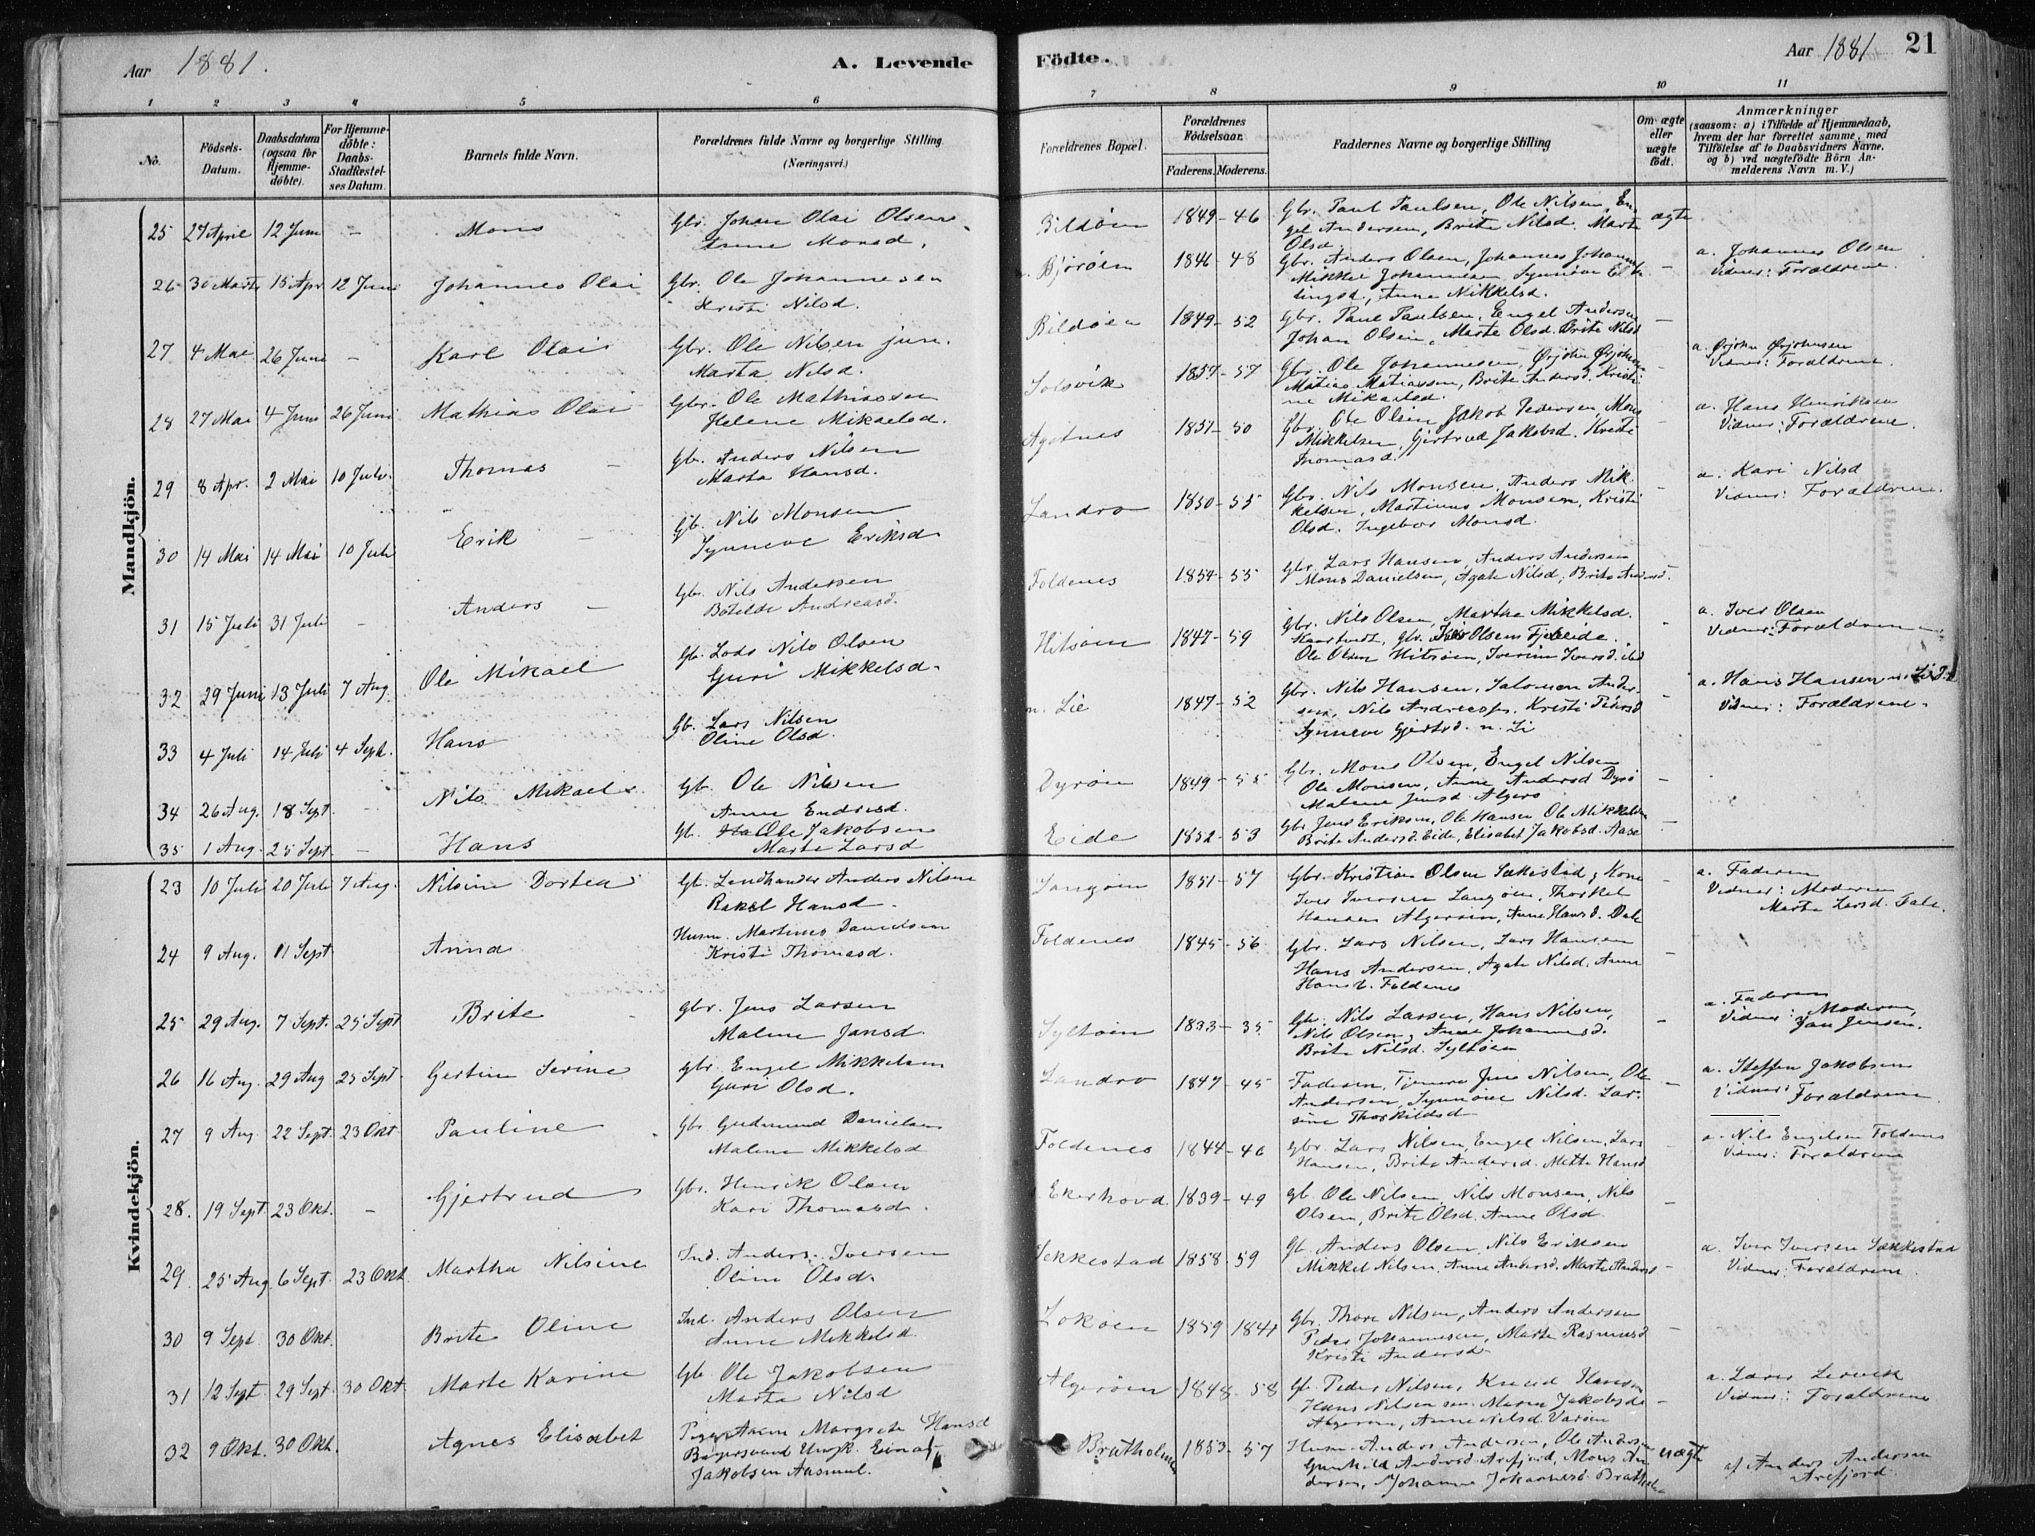 Aar 1881.
A. Levende
Födte.
Aar 1881
21
1 2 3 4 5 6 7 8 9 10 11
No.
Födsels-Datum.
Daabsdatum (ogsaa for Hjemme-döbte).
For Hjemme-döbte: Daabs-Stadfæstel-ses Datum.
Barnets fulde Navn.
Forældrenes fulde Navne og borgerlige Stilling (Næringsvei.)
Forældrenes Bopæl.
Forældrenes Födselsaar.
Faderens. Moderens.
Faddernes Navne og borgerlige Stilling
Om ægte eller uægte født.
Anmærkninger
(saasom: a) i Tilfælde af Hjemmedaab,
hvem der har forrettet samme, med
Tilföielse af to Daabsvidners Navne,
og b) ved uægtefödte Börn An-
melderens Navn m. V.)
Mandkjön.
25 27 April 12 Juni - Mons Gbr. Johan Olai Olsen Anne Monsd. Bildøen 1849 - 46 Gbr. Paul Paulsen, Ole Nilsen, En-
gel Andersen, Brite Nilsd. Marte Olsd. ægte
26 30 Marts 15 Apr 12 Juni Johannes Olai Gbr. Ole Johannesen Kristi Nilsd. Bjørøen 1846 - 48 Gbr. Anders Olsen, Johannes
Mikkel Johannesen, Synnøve
Anne Mikkelsd. - a. Johannes Olsen
Vidner: Forældrene.
27 4 Mai 26 Juni - Karl Olai Gbr. Ole Nilsen jun. Marta Nilsd. Bildøen 1849 - 52 Gbr. Paul Paulsen, Engel Andersen
Johan Olsen, Marte Olsd. Brite Nilsd -
28 27 Mai 4 Juni 26 Juni Mathias Olai Gbr. Ole Mathiassen Helene Mikaelsd. Solsvik 1857 - 57 Gbr. Ole Johannesen, Ørjohn
Matias Matiassen, Brite Andersd. Kristi-
ne Mikaelsd. - a. Ørjohn Ørjohnsen
Vidner: Forældrene.
29 8 Apr. 2 Mai 10 Juli Thomas - Gb. Anders Nilsen Marta Hansd. Agotnes 1851 - 50 Gbr. Ole Olsen, Jakob Pedersen, Mons
Mikkelsen, Gjertrud Jakobsd. Kristi
Thomasd. - a. Hans Henriksen
Vidner: Forældrene.
30 14 Mai 14 Mai 10 Juli Erik - Gb. Nils Monsen Synneve Eriksd Landro 1850 - 55 Gbr. Nils Monsen, Anders Mik-
kelsen, Martinus Monsen, Kristi
Olsd. Ingebor Monsd. - a. Kari Nilsd
Vidner: Forældrene.
31 15 Juli 31 Juli - Anders - Gb. Nils Andersen Botilde Andreasd. Foldenes 1854 - 55 Gbr. Lars Hansen, Anders Andersen
Mons Danielsen, Agate Nilsd, Brite Andersd. -
32 29 Juni 13 Juli 7 Aug. Ole Mikael Gb. Lods Nils Olsen Guri Mikkelsd. Hitsøen 1847 - 59 Gbr. Nils Olsen, Marthe Mikkelsd.
Gbr. Olsen
Ole Olsen Hitsøen, Iversd. ibd - a. Iver Olsen
Vidner: Forældrene
33 4 Juli 14 Juli 4 Sept. Hans Gb. Lars Nilsen Oline Olsd. n. Lie 1847 - 52 Gbr. Nils Hansen, Salomon Ander-
sen, Nils Kristi Pedersd
Synneve Gjertsd. n. Li - a. Hans Hansen n. Lid
Vidner: Forældrene.
34 26 Aug. 18 Sept. - Nils Mikael Gb. Ole Nilsen Anne Endresd. Dyrøen 1849 - 55 Gbr. Mons Olsen, Engel Nilsen
Ole Monsen, Anne Andersd Dyrø
Malene Jensd Algerø -
35 1 Aug. 25 Sept - Hans Gb. Ole Jakobsen Marte Larsd Eide 1852 - 53 Gbr. Jens Eriksen, Ole Hansen Ole Mikkelsen
Brite Andersd Eide, Elisabet Jakobsd. Aase -
Kvindekjön.
23 10 Juli 20 Juli 7 Aug. Nilsine Dortea Gb. Landhandler Anders Nilsen Rakel Hansd. Langøen 1851 - 57 Gbr. Kristian Olsen Sækestad, Kone
Iver Iversen Langøen, Thorkel
Hansen Algerøen, Anne Hansd. Dale - a. Faderen
Vidner: Moderen
Marte Larsd. Fale.
24 9 Aug. 11 Sept. Anna Husm. Martinus Danielsen Kristi Thomasd. Foldenes 1845 - 56 Gbr. Lars Nilsen, Lars Hansen
Hans Andersen, Agate Nilsd. Anne
Hansd. Foldenes -
25 29 Aug. 7 Sept. 25 Sept Brite - Gbr. Jens Larsen Malene Jansd. Syltøen 1833 - 35 Gb. Nils Larsen, Hans Nilsen,
Nils Olsen, Anne Johannesd.
Brite Nilsd. Syltøen - a. Faderen
Vidner: Moderen,
Jan Jensen.
26 16 Aug. 29 Aug 25 Sept. Gertine Serine Gbr. Engel Mikkelsen Guri Olsd. Landro 1847 - 45 Faderen, Tjener Jens Nilsen, Ole
Andersen, Synnøve Nilsd. Lar-
sine Thorkildsd - a. Steffen Jakobsen
Vidner: Forældrene.
27 9 Aug. 22 Sept. 23 Okt. Pauline Gbr. Gudmund Danielsen Malene Mikkelsd Foldenes 1844 - 46 Gbr. Lars Nilsen, Engel Nilsen, Lars
Hansen, Brite Andersd. Mette Hansd - a. Nils Engelsen Foldenes
Vidner: Forældrene
28. 19 Sept. 23 Okt. - Gjertrud Gbr. Henrik Olsen Kari Thomasd. Ekerhovd. 1839 - 49 Gb. Ole Nilsen, Nils Monsen, Nils
Olsen, Brite Olsd. Anne Olsd. -
29. 25 Aug 6 Sept. 23 Okt Martha Nilsine Ind. Anders Iversen Oline Olsd. Sekkestad 1858 - 59 Gb. Anders Olsen, Nils Eriksen
Mikkel Nilsen, Anne Andersd. Marte Andersd - a. Iver Iversen Sækkestad
Vidner: Forældrene
30 9 Sept 30 Okt. Brite Oline Ind. Anders Olsen Anne Mikkelsd. Lokøen 1859 1841 Gbr. Thore Nilsen, Anders Andersen
Peder Johannesen, Marte Rasmusd
Kristi Andersd. -
31 12 Sept 29 Sept. 30 Okt. Marte Karine Gb. Ole Jakobsen Marta Nilsd Algerøen 1848 - 58 Gb. Peder Nilsen, Knud Hansen
Hans Nilsen sen. Jakobsd
Algerøen, Anne Nilsd. - a. Lærer
Vidner: Forældrene
32 9 Okt. 30 Okt. Agnes Elisabet Pige Margrete Hansd
Ungk. Einar
Jakobsen Bratholmen 1853 - 57 Husm. Anders Andersen, Ole Anders-
Gunhild Andersd Arefjord, Mons An-
dersen, Johanne Johannesd Bratholm uægte af Anders Andersen
Arefjord.